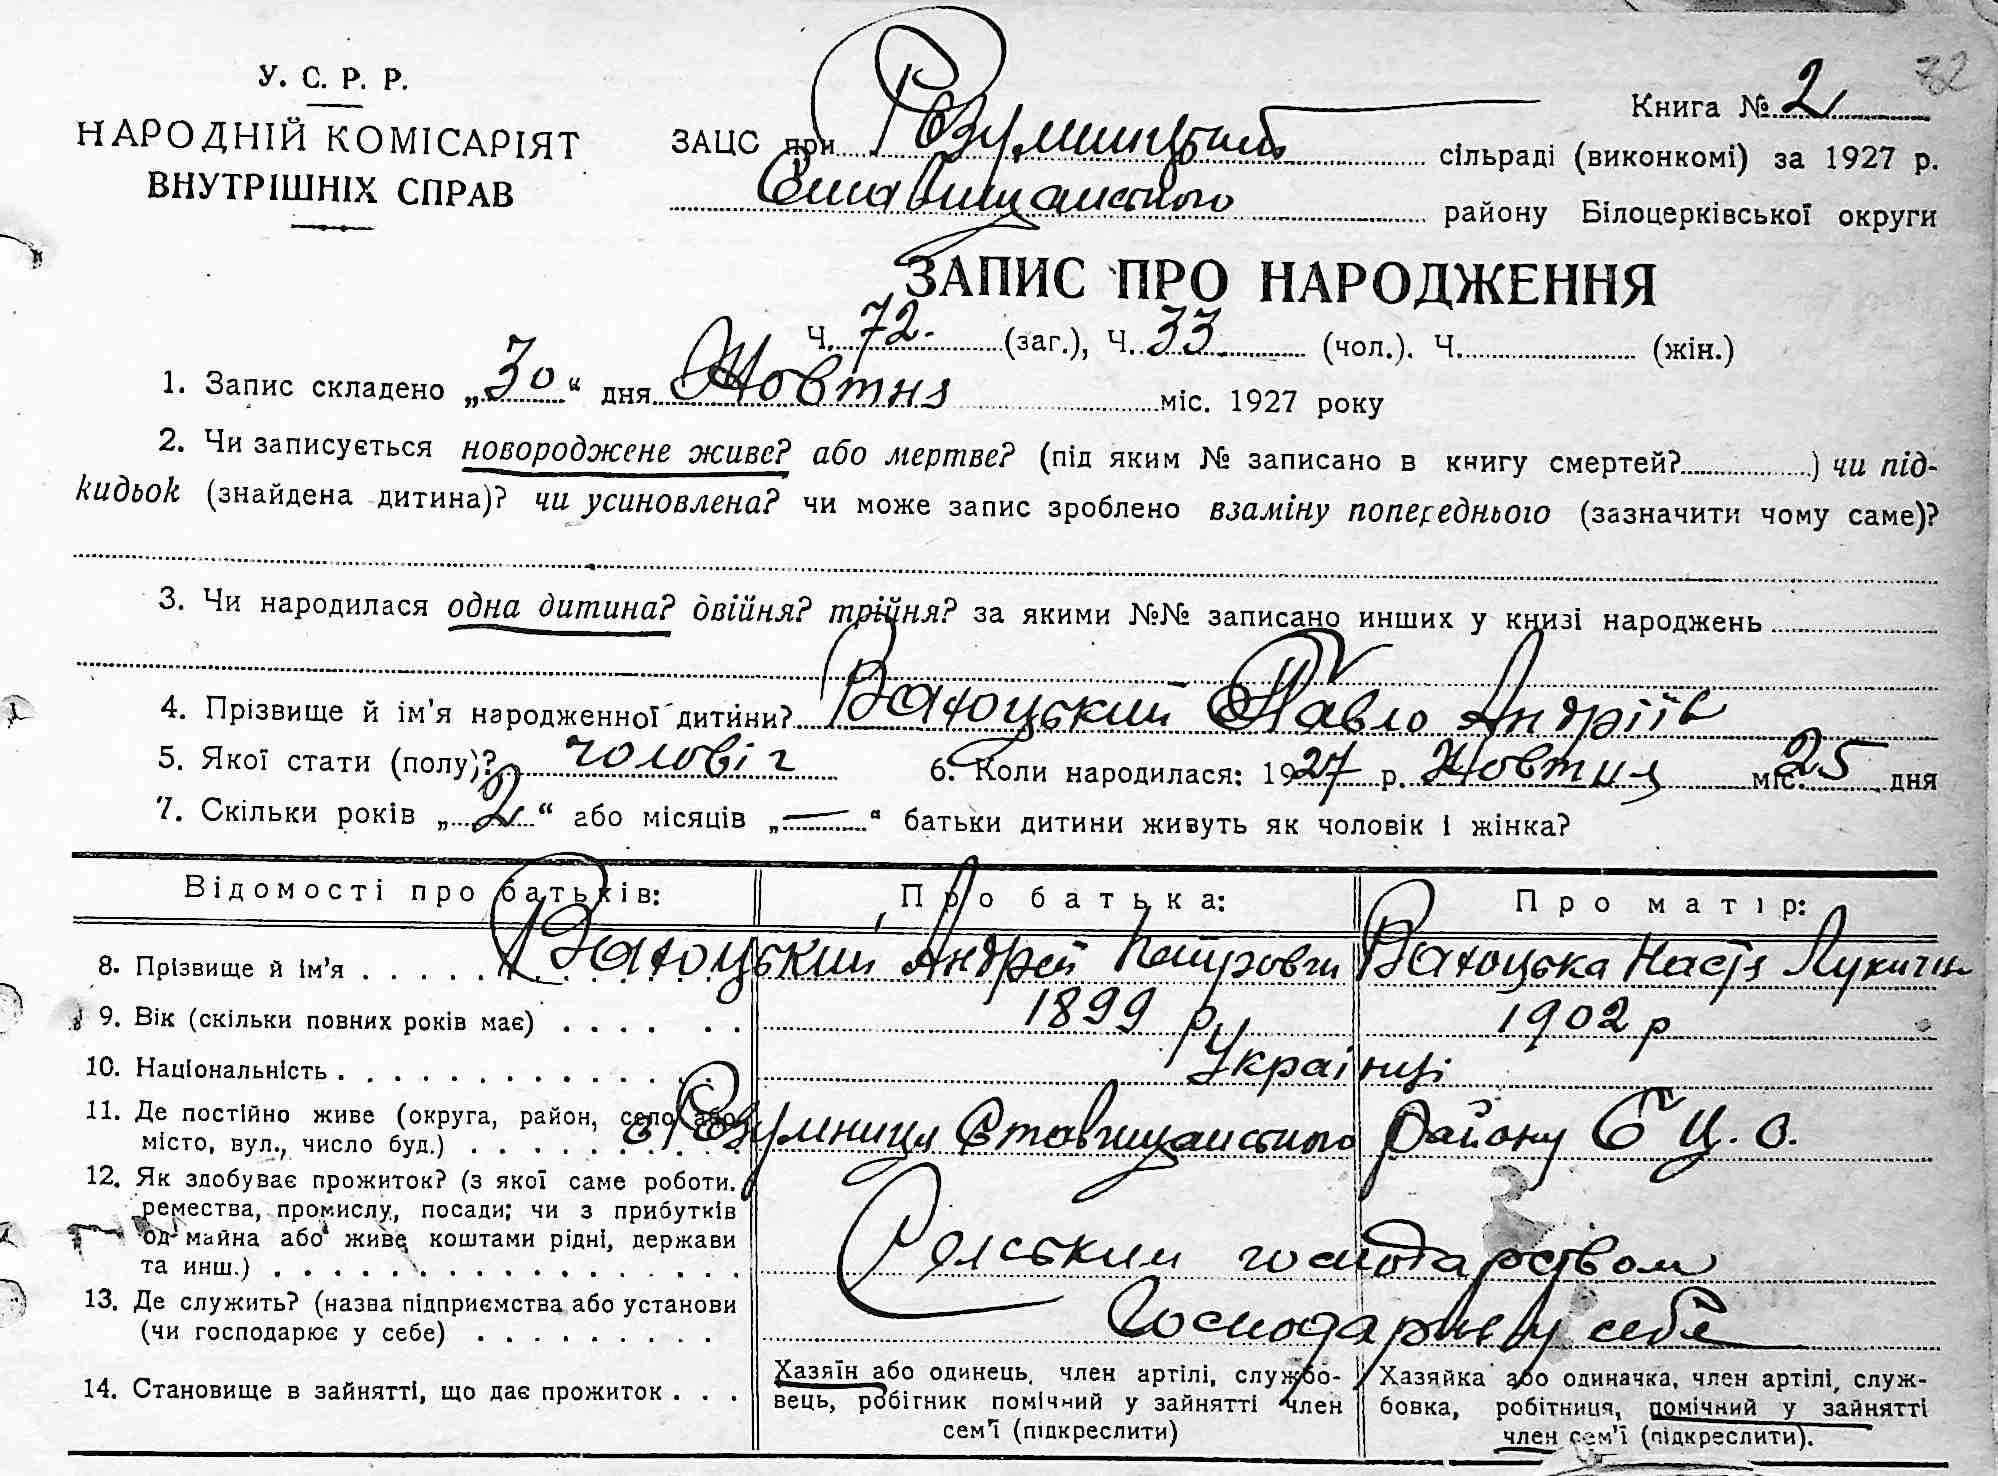 72
У. С. Р. Р.
НАРОДНІЙ КОМІСАРІЯТ
ВНУТРІШНІХ СПРАВ
Книга № 2
ЗАЦС при Розумницькій сільраді (виконкомі) за 1927 р.
Ставищанського району Білоцерківської округи
ЗАПИС ПРО НАРОДЖЕННЯ
Ч. 72. (заг.), Ч. 33 (чол.). Ч. (жін.)
1. Запис складено „30“ дня Жовтня міс. 1927 року
2. Чи записується новороджене живе? або мертве? (під яким № записано в книгу смертей? ) чи під-
кидьок (знайдена дитина)? чи усиновлена? чи може запис зроблено взаміну попереднього (зазначити чому саме)?
3. Чи народилася одна дитина? двійня? трійня? за якими №№ записано инших у книзі народжень
4. Прізвище й ім'я народженної дитини? Ватоцький Павло Андріїв
5. Якої стати (полу)? чоловіч 6. Коли народилася: 1927 р. Жовтня міс. 25 дня
7. Скільки років „2“ або місяців „—“ батьки дитини живуть як чоловік і жінка?
Відомості про батьків: Про батька: Про матір:
8. Прізвище й ім'я . . . . . . Ватоцький Андрей Петрович Ватоцька Настя
9. Вік (скільки повних років має) . . . . . . 1899 р 1902 р
10. Національність . . . . . . . . . . . . . Українці
11. Де постійно живе (округа, район, село або
місто, вул., число буд.) . . . . . . . . . . с Розумниця Ставищанського району БЦ. О.
12. Як здобуває прожиток? (з якої саме роботи.
ремества, промислу, посади; чи з прибутків
од майна або живе коштами рідні, держави
та инш.) . . . . . . . . . . . . . . . . . Сельським господарством
13. Де служить? (назва підприємства або установи
(чи господарює у себе) . . . . . . . . . Господарює у себе
14. Становище в зайнятті, що дає прожиток . . .
Хазяїн або одинець, член артілі, службо-
вець, робітник помічний у зайнятті член
сем'ї (підкреслити)
Хазяйка або одиначка, член артілі, служ-
бовка, робітниця, помічний у зайнятті
член сем'ї (підкреслити).